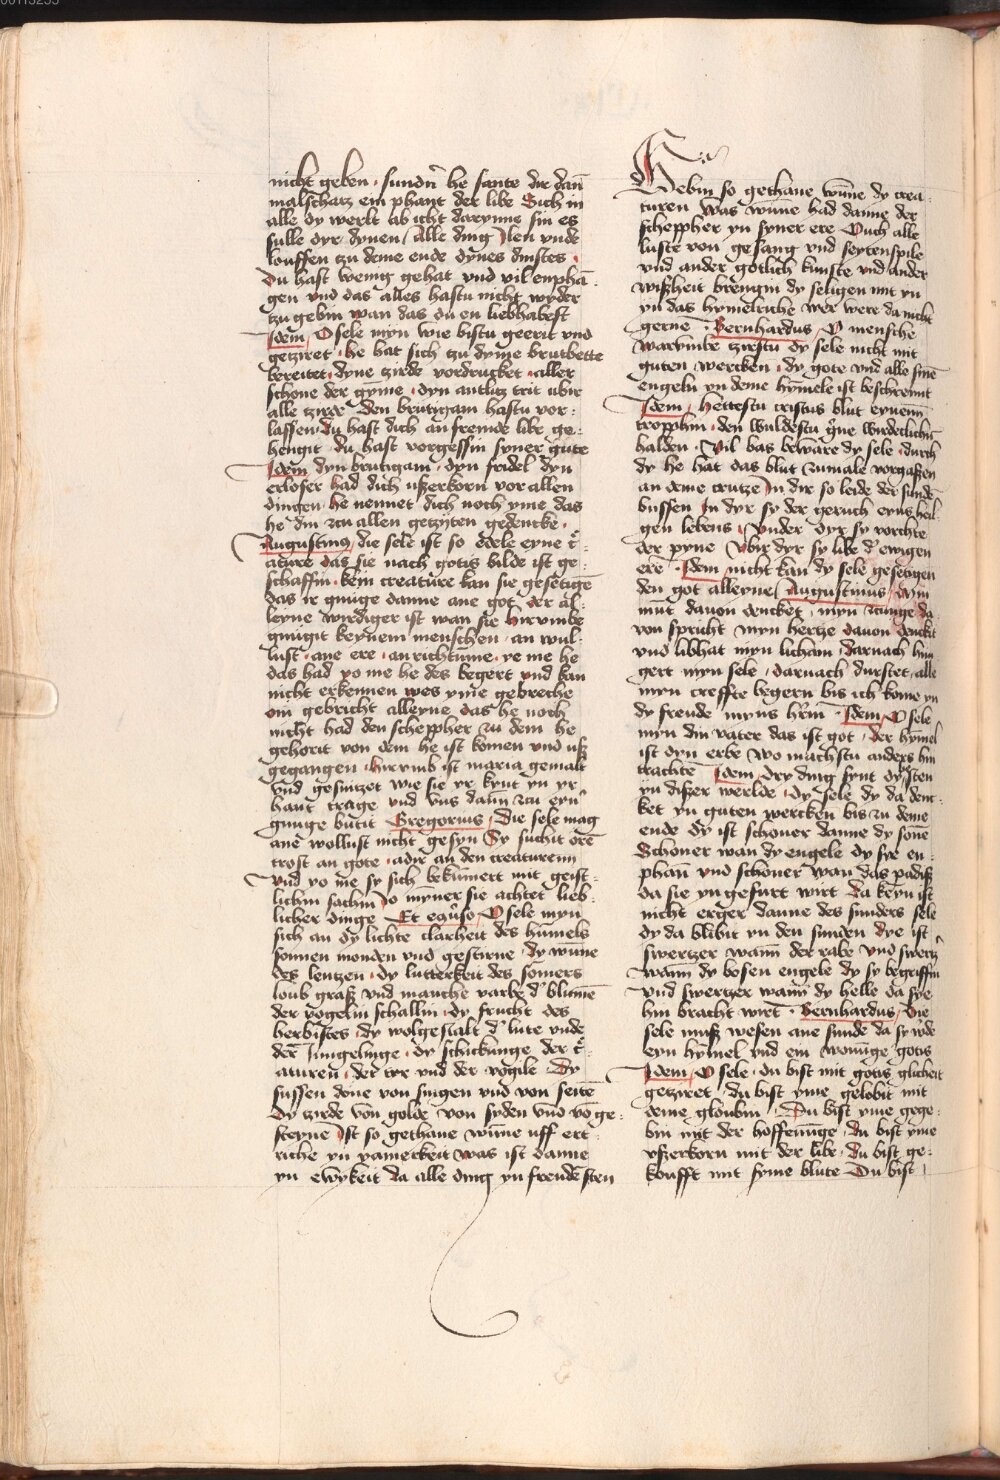 nicht geben · sundern he sante dir dan
malschatz ein phant der libe Sich in
alle dy werlt ab icht darynne sin es
sulle dyr dynen / Alle ding Ilen vnde
louffen tzu deme ende dynes dinstes ·
Du hast wenig gehat vnd vil enphā-
gen vnd das alles hastu nicht wyder
tzu gebin wan das du en liebhabest
Idem / O sele myn wie bistu geerit vnd
getziret · he hat sich tzu dyme brutbette
bereitet · dyne zirde vordrucket · aller
schone der gymme · dyn antlitz trit ubir
alle zirde Den brutigam hastu vor-
lassen · du hast dich an fremde libe ge-
hengit · du hast vorgessin syner gute
Idem dyn brutigam · dyn fridel dyn
erloser had dich ußerkorn vor allen
dingen · he nennet dich noch yme das
he din zcu allen getzyten gedencke ·
Augustinus / die sele ist so edele eyne cr-
ature das sie nach gotis bilde ist ge-
schaffin · kein creature kan sie gesetige
das ir gnuge danne ane got der al-
leyne wirdiger ist wan sie hirumbe
gnugit keynem menschen · an wul-
lust · ane ere · an richtume · ye me he
das had yo me he des begert vnd kan
nicht erkennen wes yme gebreche
om gebricht alleyne das he noch
nicht had den scheppher zu dem he
gehorit von dem he ist komen vnd uß
gegangen · hirvmb ist maria gemalt
vnd gesnitzet wie sie yr kynt yn yr
hant trage vnd vns dann zcu eyn
gnuge butit Gregorius / Die sele mag
ane wollust nicht gesyn Sy suchit ore
trost an gote · adir an den creaturenn
vnd yo me sy sich bekummert mit geist-
lichin sachin yo mynner sie achtet lieb-
licher dinge Et equso / O sele myn
sich an dy lichte clarheit des humels
sonnen monden vnd gestirne · dy wūne
des lentzen · dy lutterkeit des somers
loub graß vnd manche varbe d' blumē
der vogelin schallin · dy frucht des
herbistes · dy wolgestalt d' lute vnde
der Jungelinge · dy schickunge der cr-
aturen · der tyr vnd der vogile · Dy
sussen done von singen vnd von seitē
Dy zirde von golde von syden vnd vō ge-
steyne Ist so gethane wūne uff ert-
riche yn yamerkeit was ist danne
yn ewykeit da alle ding yn freuden sten
Hebin so gethane wūne dy crea-
turen Was wūne had danne der
scheppher yn syner ere Ouch alle
luste von gesang vnd seytenspile
vnd ander gotlich kunste vnd ander
wißheit brengin dy seligen mit yn
yn das hymelriche wer were da nicht
gerne · Bernhardus / O mensche
warumbe zirestu dy sele nicht mit
guten wercken · dy gote vnd alle sine
engeln yn deme hymele ist beschremt
Idem / Hettestu cristus blut eynenn
tropphin · den wuldestu gerne wirdeclichin
halden · Vil bas beware dy sele · durch
dy he hat das blut zumale vorgaßen
an deme crutze In dir so leide der sunde
bussen In dyr sy der geruch eyns heil-
gen lebens · Vnder dyr sy vorchte
der pyne Vbir dyr sy libe d' ewigen
ere · Idem nicht kan dy sele gesetigen
den got alleyne / Augustinus / Myn
mut dauon dencket · myn zcunge da
von spricht myn hertze dauon denckit
vnd libhat myn licham · darnach hun
gert myn sele · darnach durstet · alle
myn creffte begern bis ich kome yn
dy freude myns hrn · Idem / O sele
myn din vater das ist got · der hymel
ist dyn erbe wo machstu anders hin
trachte Idem / Dry ding synt dy besten
yn dißer werlde · dy sele dy da denc-
ket yn guten wercken bis zu deme
ende Dy ist schoner danne dy sonē
Schoner wan dy engele dy sye en-
phan vnd schoner wan das padiß
da sie yn gefurt wirt da keyn ist
nicht erger danne des sunders sele
dy da blibit yn den sunden dye ist
swertzer wann der rabe vnd swertz'
wann dy bosen engele dy sy begriffin
vnd swertzer wann dy helle da sye
hin bracht wirt · Bernhardus / Die
sele muß wesen ane sunde da sy wde
eyn hymel vnd ein wonūge gotis
Idem / O sele · du bist mit gotis glicheit
getziret · du bist yme gelobit mit
deme gloubin · Du bist yme gege-
bin mit der hoffenunge · du bist yme
vßerkorn mit der libe · du bist ge-
koufft mit syme blute Du bist